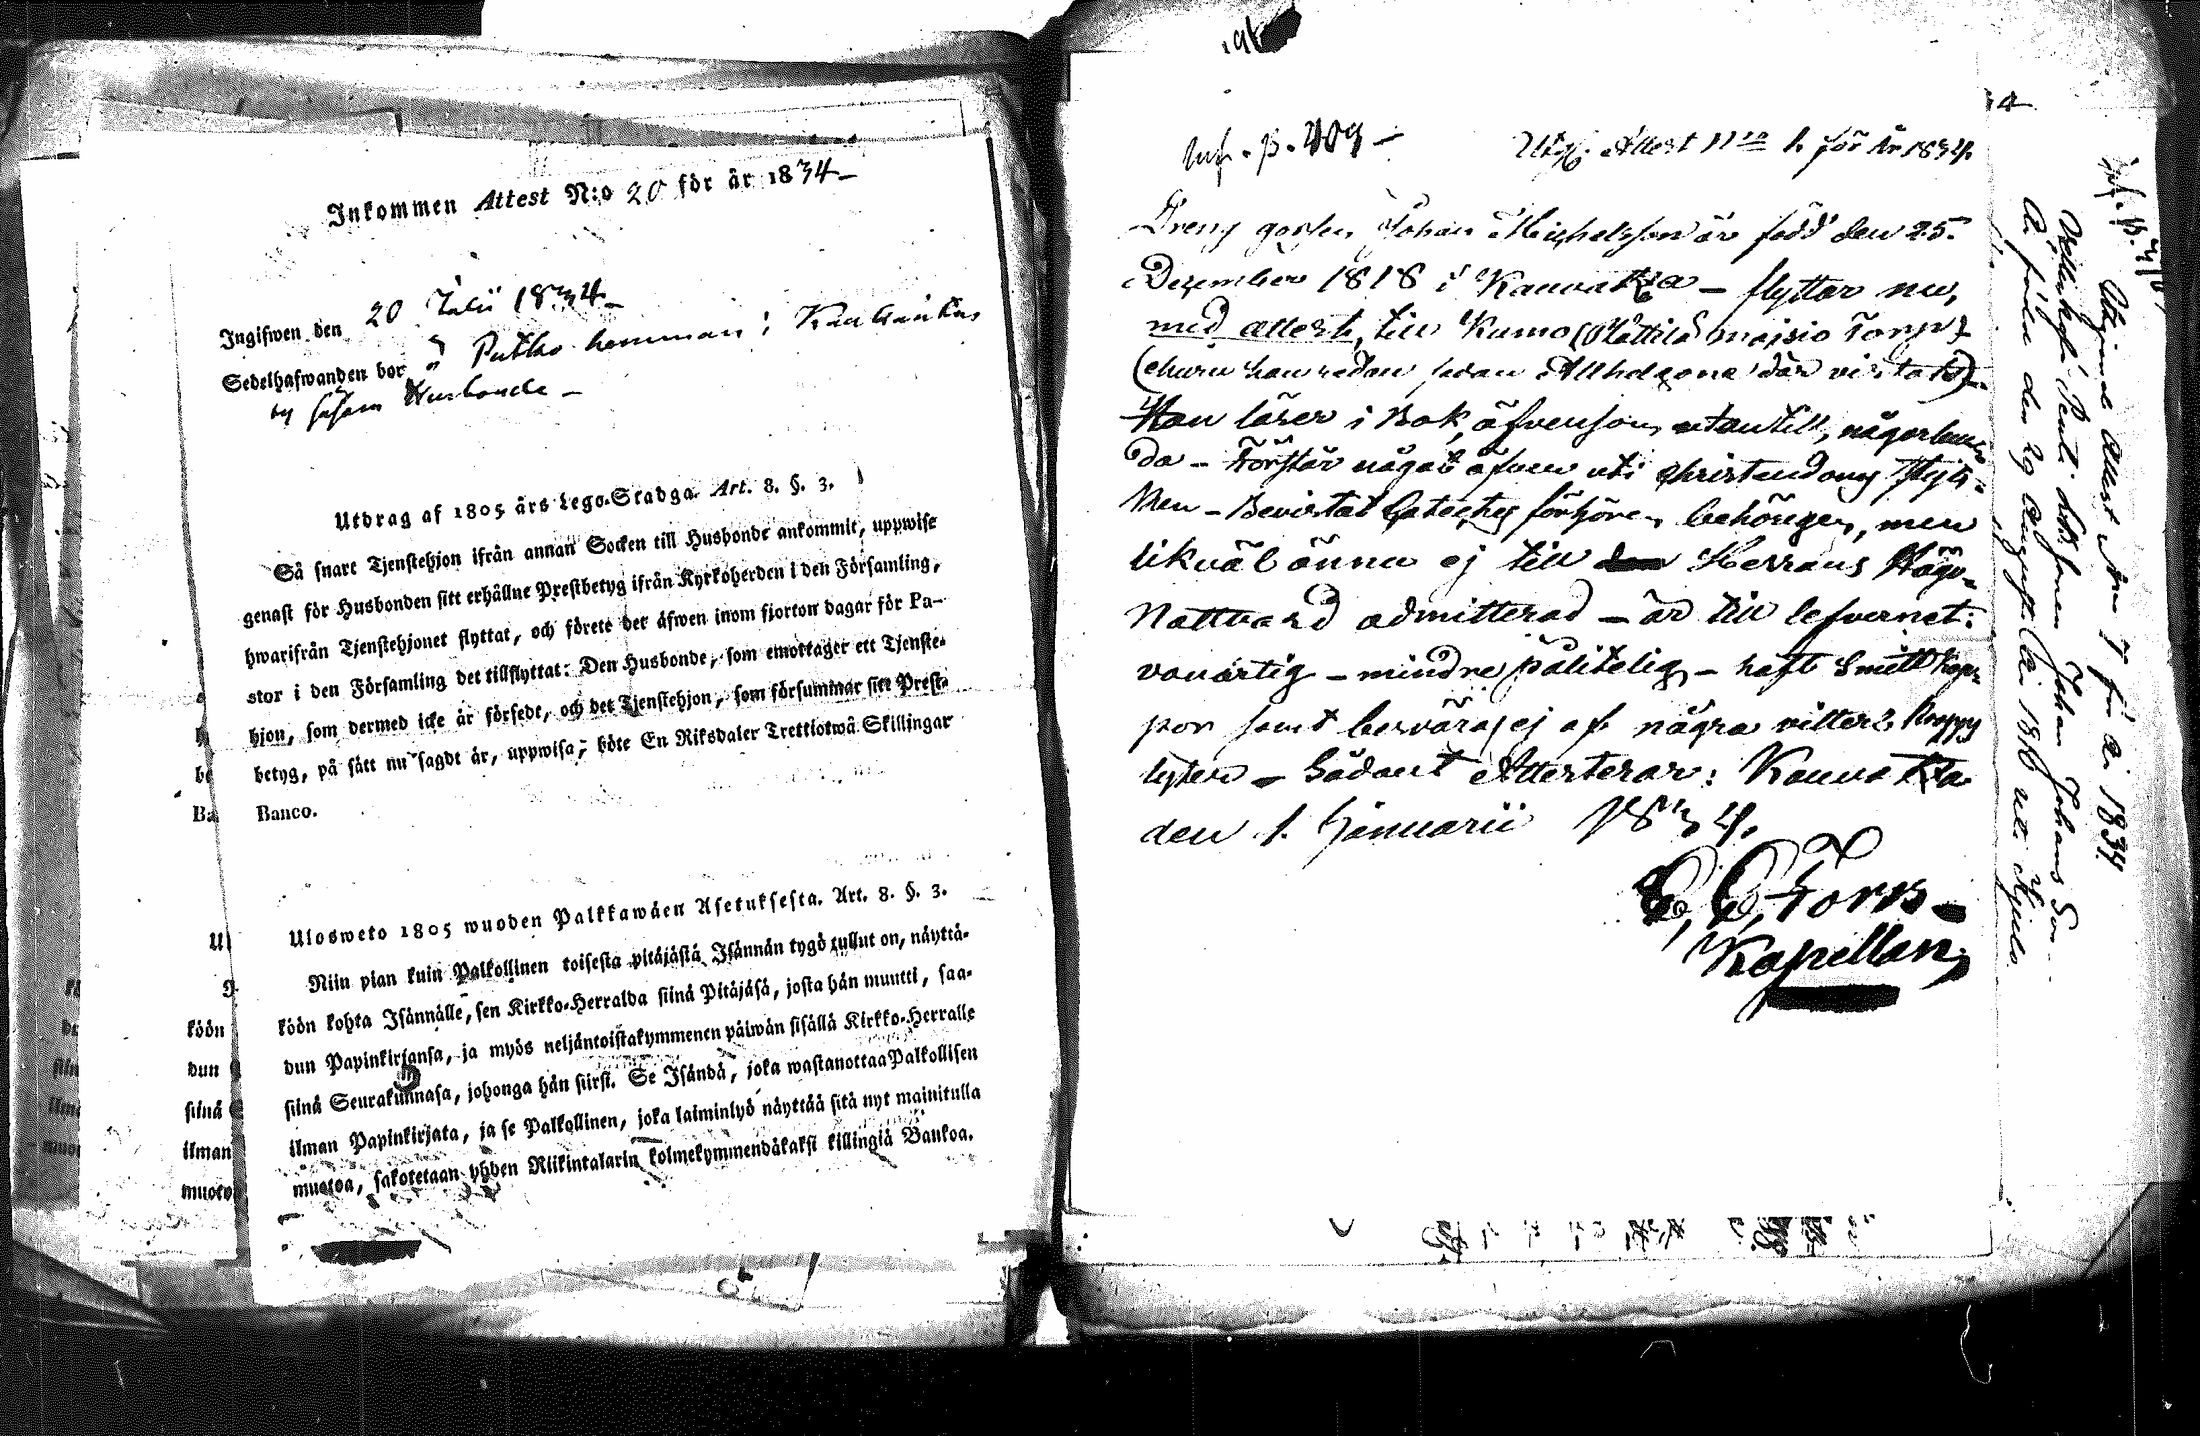 Inkommen Attest N:o 20 för år 1834
Ingifwen den 20 Julii 1834
Sedelhafwanden bor å Puttko hemman i
by Husbonde
Utdrag af 1805 års Lego-Stadga. Art. 8. §. 3.
Så snart Tjenstehjon ifrån annan Socken till Husbonde ankommit, uppwise
genast för Husbonden sitt erhållne Prestbetyg ifrån Kyrkoherden i den Församling,
hwarifrån Tjenstehjonet flyttat, och förete det äfwen inom fjorton dagar för Pa-
stor i den Församling det tillflyttat: Den Husbonde, som emottager ett Tjenste-
hjon, som dermed icke är försedt, och det Tjenstehjon, som försummar sitt Prest-
betyg, på sätt nu sagdt är, uppwisa, böte En Riksdaler Trettiotwå Skillingar
Banco.
Ulosweto 1805 wuoden Palkkawäen Asetuksesta. Art. 8. §. 3.
Niin pian kuin Palkollinen toisesta pitäjästä Isännän tygö tullut on, näyttä-
köön kohta Isännälle, sen Kirkko-Herralda siinä Pitäjäsä, josta hän muutti, saa-
dun Papinkirjansa, ja myös neljäntoistakymmenen päiwän sisällä Kirkko-Herralle
siinä Seurakunnasa, johonga hän siirsi. Se Isändä, joka wastanottaa Palkollisen
ilman Papinkirjata, ja se Palkollinen, joka laiminlyö näyttää sitä nyt mainitulla
muotoa, sakotetaan yhden Riikintalarin kolmekymmendäkaksi killingiä Bankoa.
be
Ba
köön
dun
siinä
ilman
muoto
Inf. p. 409 - Utg. Attest N:o 1. för år 1834.
Dreng gossen Johan Michelsson är född den 25.
December 1818 i Kauvatsa – flyttar nu,
med attest, till Kumo (Mattila maisio Torp)
(churu han redan sedan Allhelgona där vistats).
Han läser i Bok, äfvensom utantill, någorlun-
da – Förstår något äfven uti Christendoms styck-
en – Bevistat Catechis förhören behörigen, men
likväl ännu ej till Herrans Hög-
Nattvard admitterad – är till lefvernet:
vanartig – mindre pålitelig – haft Smittkop-
por samt besväras ej af några vitterl. Kropps
lyten – Sådant Attesterar: Kauvatsa
den 1. Januarii 1834.
C, C, Forss
Kapellan,
4
Utgifvande Attest N:o 7 för år 1834
Johan Johans Son
Är född den 29 Augusti år 1816 uti